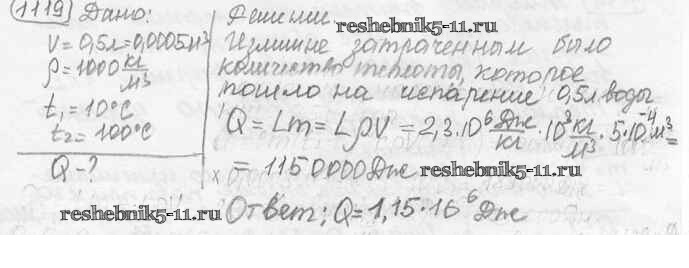 1119 Дано:
V=0,5л=0,0005м³
ρ=1000 кг/м³
t₁=10°С
t₂=100°С
Q-?
Решение.
reshebnik5-11.ru
Излишне затраченным было
количество теплоты, которое
пошло на испарение 0,5л воды
Q=Lm=LρV=2,3·10⁶ Дж/кг·10³ кг/м³·5·10⁻⁴м³=
=1150000Дж
reshebnik5-11.ru
reshebnik5-11.ru
Ответ: Q=1,15·10⁶ Дж